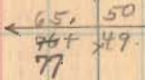 65. 50
76+ 249.
77